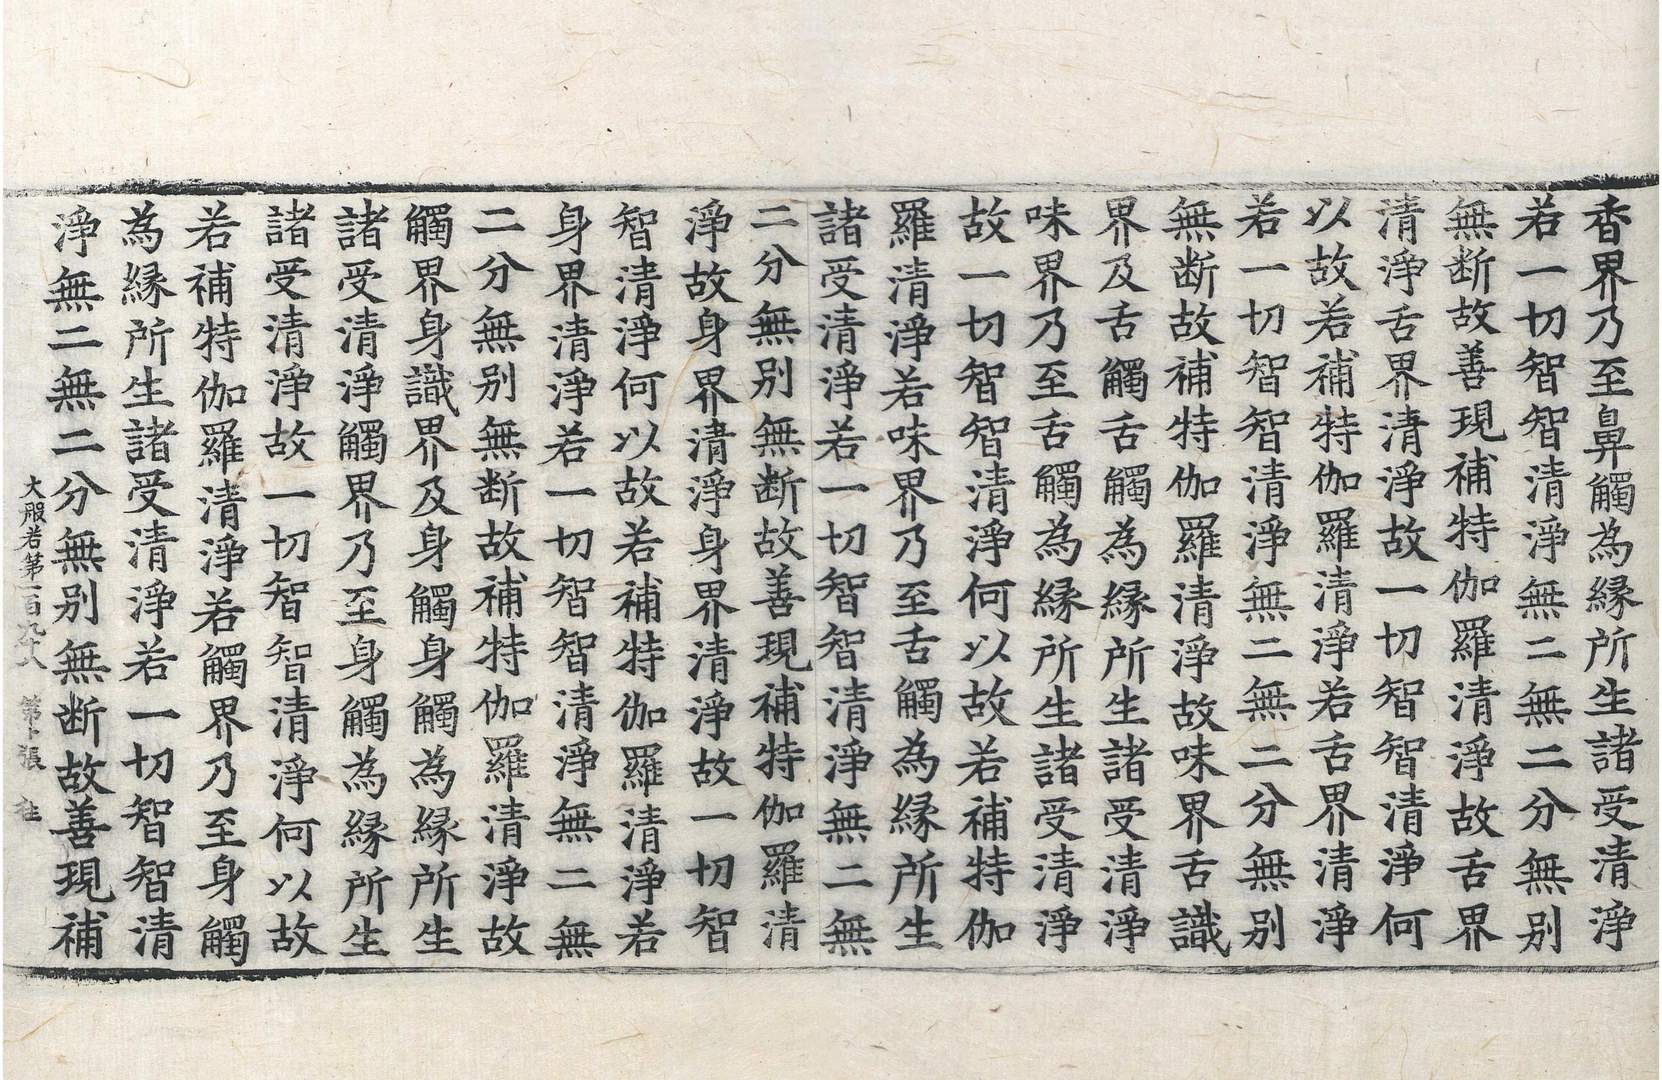 香界乃至鼻觸為縁所生諸受清淨
若一切智智清淨無二無二分無别
無断故善現補特伽羅清淨故舌界
清淨舌界清淨故一切智智清淨何
以故若補特伽羅清淨若舌界清淨
若一切智智清淨無二無二分無别
無断故補特伽羅清淨故味界舌識
界及舌觸舌觸為縁所生諸受清淨
味界乃至舌觸為縁所生諸受清淨
故一切智智清淨何以故若補特伽
羅清淨若味界乃至舌觸為縁所生
諸受清淨若一切智智清淨無二無
二分無别無断故善現補特伽羅清
淨故身界清淨身界清淨故一切智
智清淨何以故若補特伽羅清淨若
身界清淨若一切智智清淨無二無
二分無别無断故補特伽羅清淨故
觸界身識界及身觸身觸為縁所生
諸受清淨觸界乃至身觸為縁所生
諸受清淨故一切智智清淨何以故
若補特伽羅清淨若觸界乃至身觸
為縁所生諸受清淨若一切智智清
淨無二無二分無别無断故善現補
大般若第一百九十八 第十張